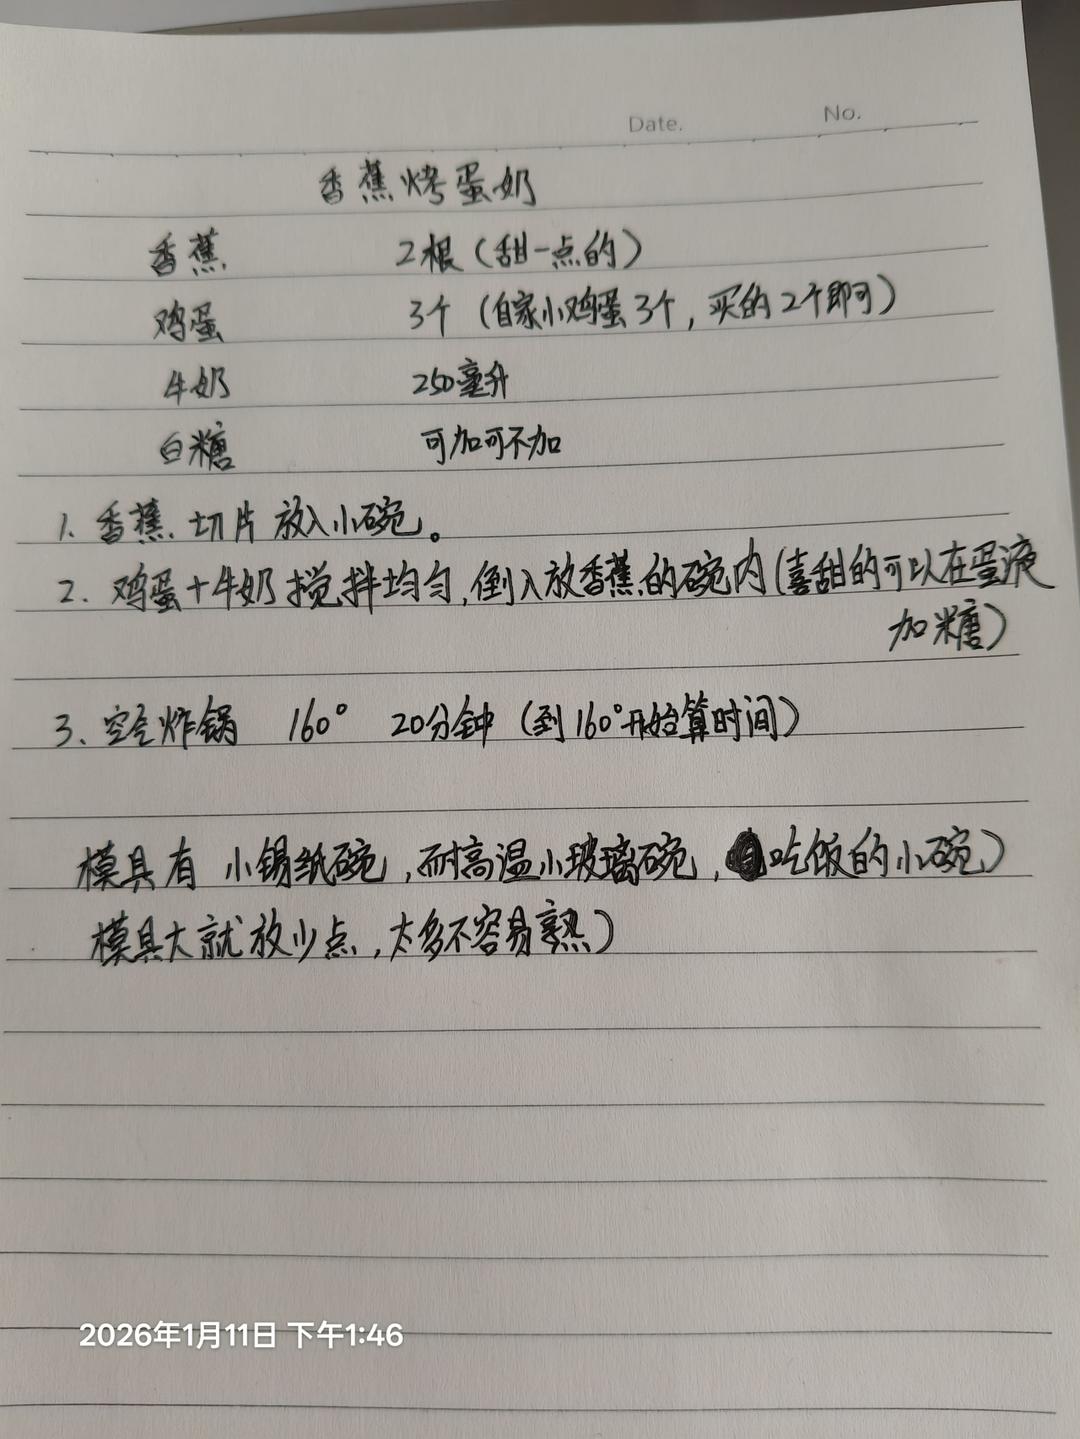 Date. No.
香蕉烤蛋奶
香蕉 2根（甜一点的）
鸡蛋 3个（自家小鸡蛋3个，买的2个即可）
牛奶 250毫升
白糖 可加可不加
1. 香蕉切片 放入小碗。
2. 鸡蛋+牛奶搅拌均匀,倒入放香蕉的碗内(喜甜的可以在蛋液
加糖）
3. 空气炸锅 160° 20分钟（到160°开始算时间）
模具有 小锡纸碗,耐高温小玻璃碗,吃饭的小碗）
模具大就放少点,太多不容易熟）
2026年1月11日 下午1:46